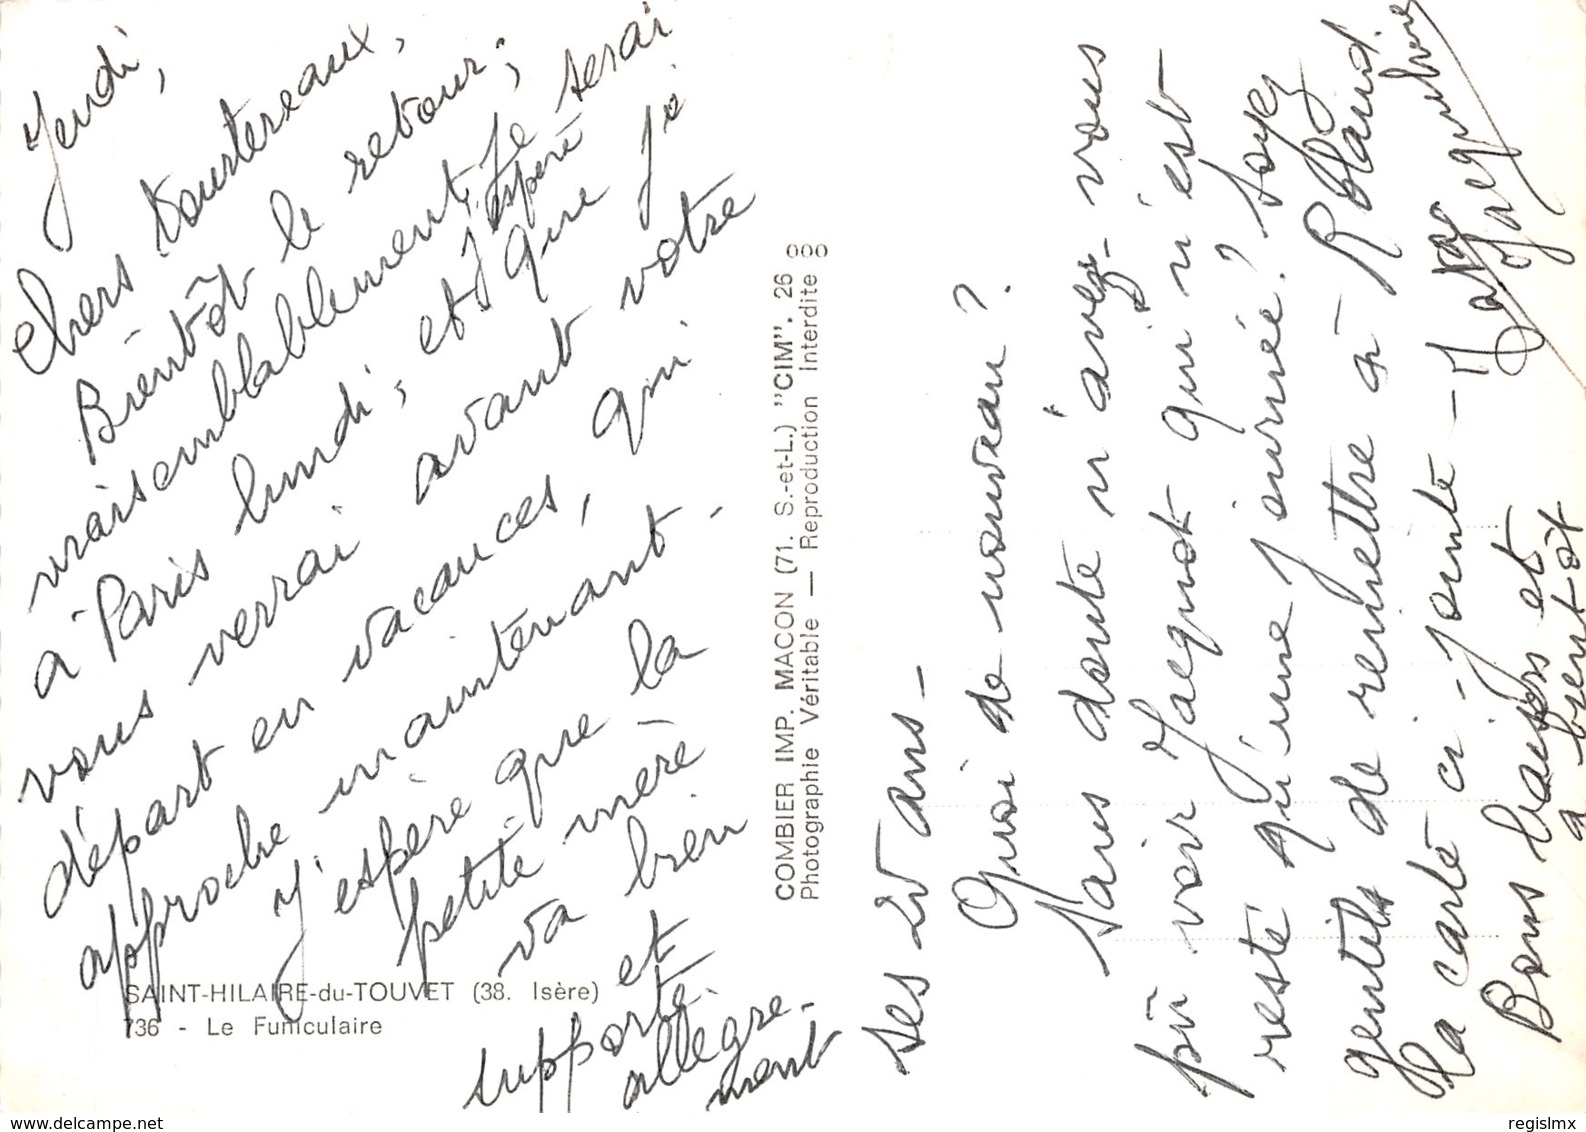 Jeudi,
Chers tourtereaux,
Bientôt le retour;
vraisemblablement je serai
à Paris lundi, et j'espère que je
vous verrai avant votre
départ en vacances, qui
approche maintenant.
J'espère que la
petite mère
va bien
et
supporte
allègre-
ment
ses 20 ans -
Quoi de nouveau ?
Sans doute n'avez-vous
pu voir Jacquot qui n'est
resté qu'une journée? Soyez
gentils de remettre à Roland
la carte ci-jointe -
Bons baisers et
à bientôt
SAINT-HILAIRE-du-TOUVET (38. Isère)
736 - Le Funiculaire
COMBIER IMP. MACON (71. S.-et-L.) "CIM". 26
Photographie Véritable — Reproduction Interdite
delcampe.net
regislmx